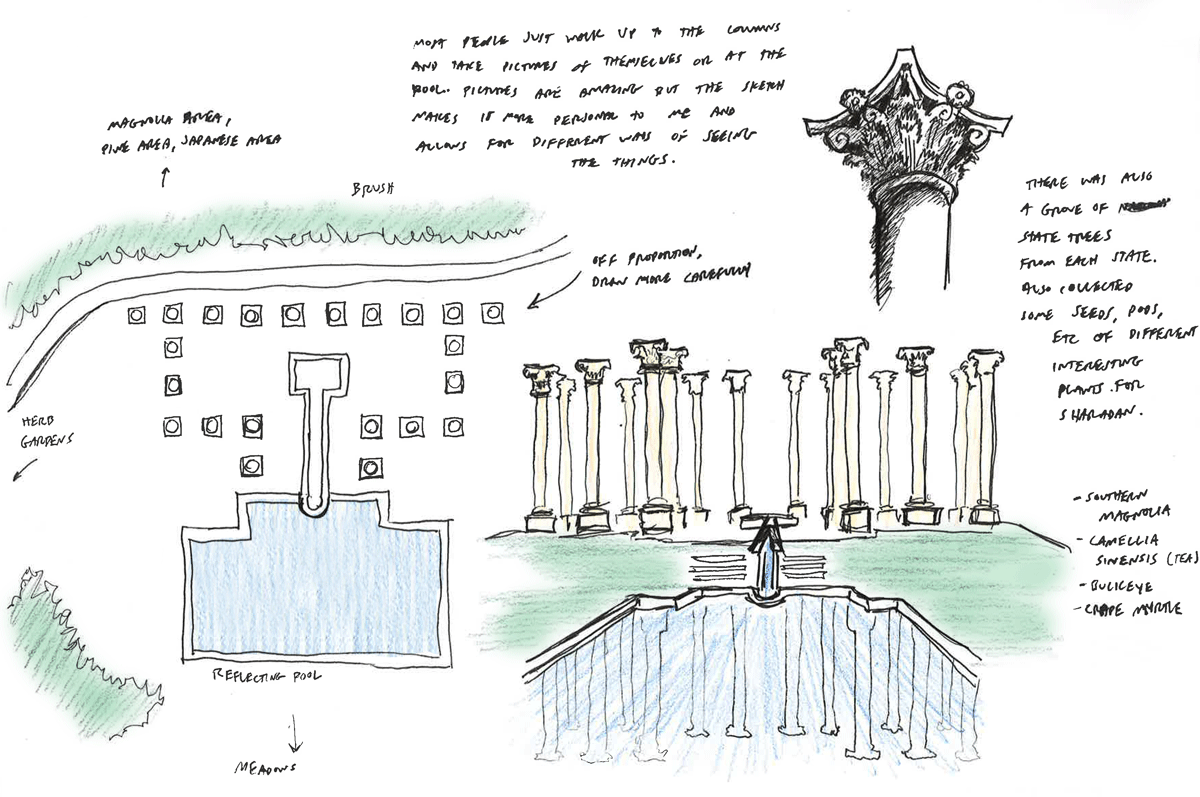 MOST PEOPLE JUST WALK UP TO THE COLUMNS
AND TAKE PICTURES OF THEMSELVES OR AT THE
POOL. PICTURES ARE AMAZING BUT THE SKETCH
MAKES IT MORE PERSONAL TO ME AND
ALLOWS FOR DIFFERENT WAYS OF SEEING
THE THINGS.
MAGNOLIA AREA,
PINE AREA, JAPANESE AREA
BRUSH
OFF PROPORTION,
DRAW MORE CAREFULLY
HERB
GARDENS
REFLECTING POOL
MEADOWS
THERE WAS ALSO
A GROVE OF
STATE TREES
FROM EACH STATE.
ALSO COLLECTED
SOME SEEDS, PODS,
ETC OF DIFFERENT
INTERESTING
PLANTS. FOR
SHARADAN.
- SOUTHERN
MAGNOLIA
- CAMELLIA
SINENSIS (TEA)
- BUCKEYE
- CRAPE MYRTLE